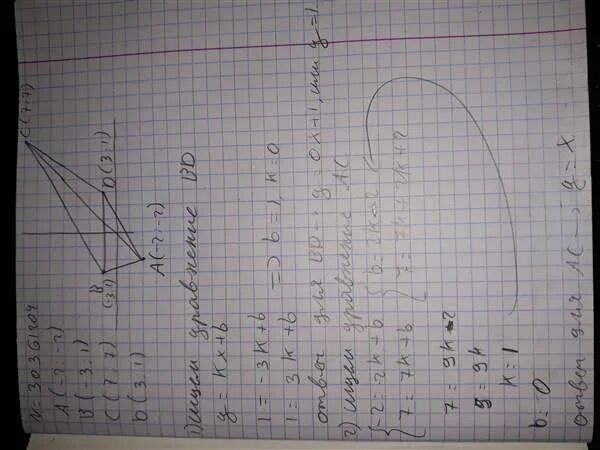 N = 30361204
A (-2; -2)
B (-3; 1)
C (7; 7)
D (3; 1)
C (7; 7)
D (3; 1)
B
(-3; 1)
A (-2; -2)
1) ищем уравнение BD
y = kx+b
1 = -3k+b
1 = 3k+b => b=1, k=0
ответ для BD → y = 0x+1, или y=1
2) ищем уравнение AC
{-2=-2k+b {b=2k-2
{7 = 7k+b {7 = 7k+2k-2
7 = 9k-2
9 = 9k
k = 1
b = 0
ответ для AC → y = x